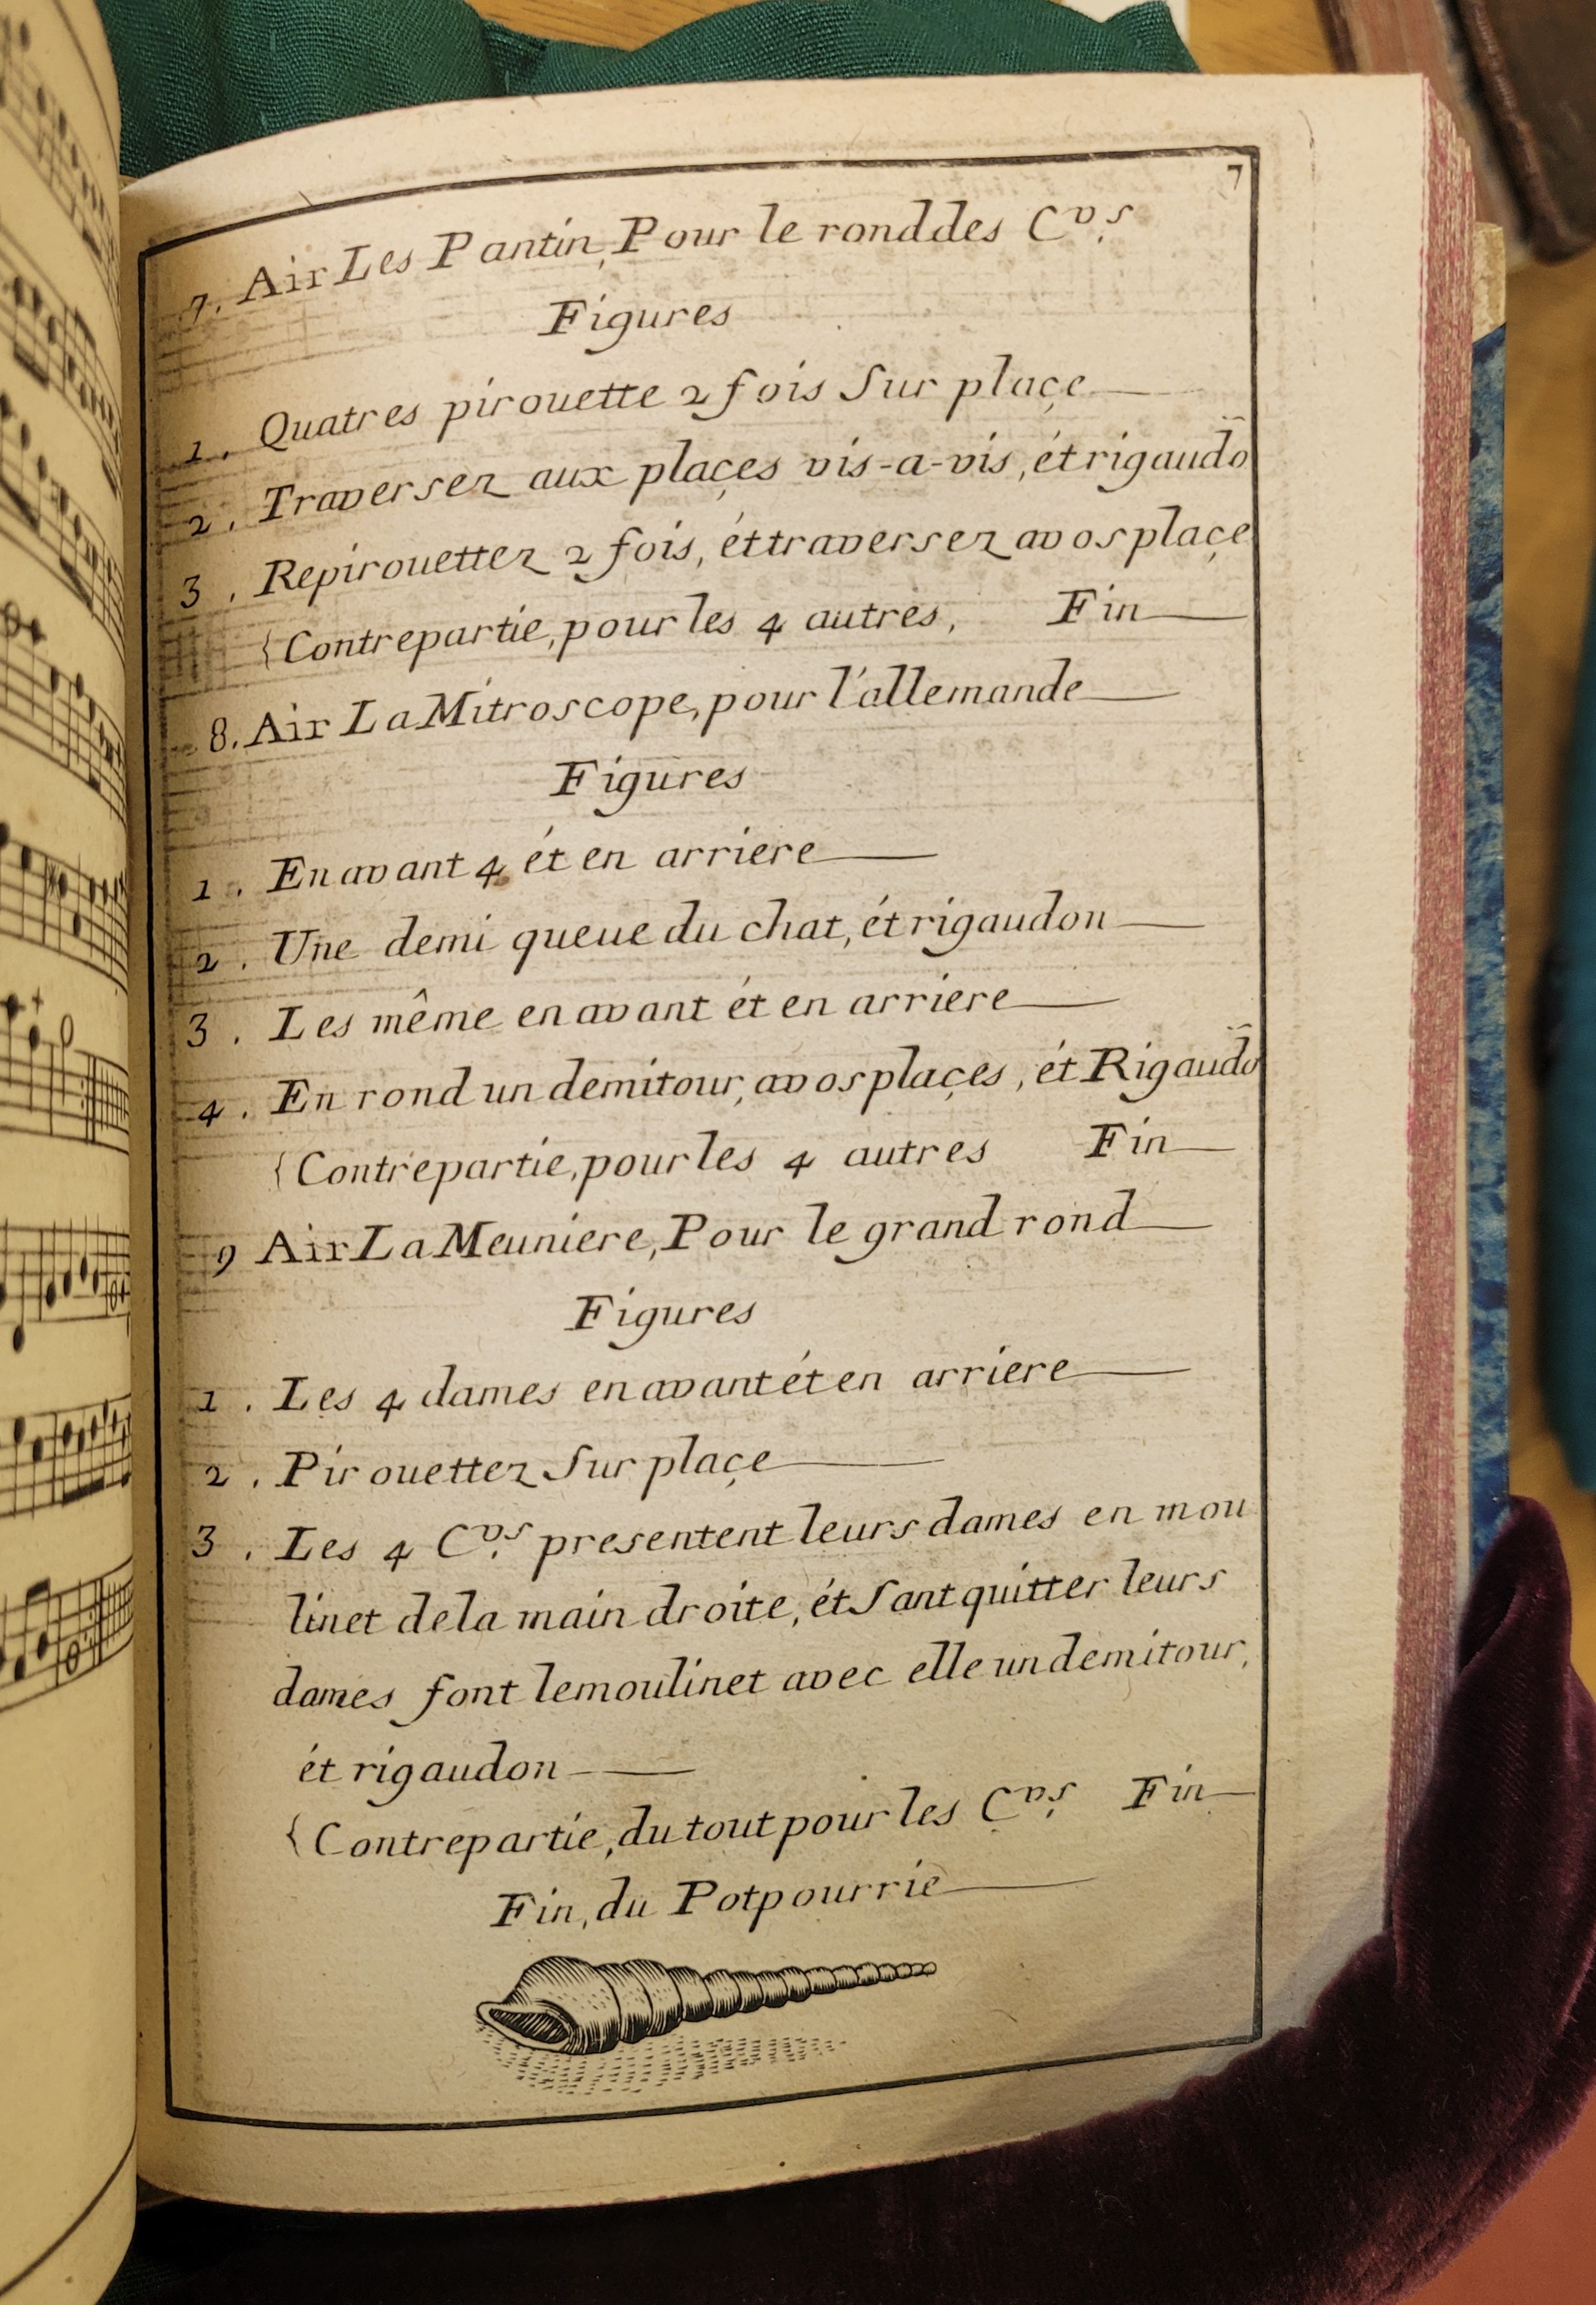 7
7. Air Les Pantin, Pour le rond des C.vs
Figures
1. Quatres pirouette 2 fois Sur plaçe
2. Traversez aux plaçes vis-a-vis, ét rigaudõ
3. Repirouettez 2 fois, ét traversez a vos plaçe
{Contrepartie, pour les 4 autres, Fin
8. Air La Mitroscope, pour l'allemande
Figures
1. En avant 4 ét en arriere
2. Une demi queue du chat, ét rigaudon
3. Les même en avant ét en arriere
4. En rond un demi tour, a vos plaçes, ét Rigaudõ
{Contrepartie, pour les 4 autres Fin
9 Air La Meuniere, Pour le grand rond
Figures
1. Les 4 dames en avant ét en arriere
2. Pirouettez Sur plaçe
3. Les 4 C.vs presentent leurs dames en mou
linet de la main droite, ét Sant quitter leurs
dames font le moulinet avec elle un demi tour,
ét rigaudon
{Contrepartie, du tout pour les C.vs Fin
Fin, du Potpourrie